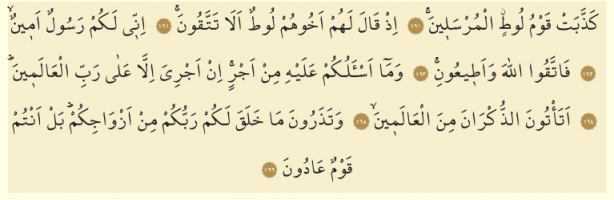 كَذَّبَتْ قَوْمُ لُوطٍۨ الْمُرْسَل۪ينَۚ ﴿١٦٠﴾ اِذْ قَالَ لَهُمْ اَخُوهُمْ لُوطٌ اَلَا تَتَّقُونَۚ ﴿١٦١﴾ اِنّ۪ي لَكُمْ رَسُولٌ اَم۪ينٌۙ
﴿١٦٢﴾ فَاتَّقُوا اللّٰهَ وَاَط۪يعُونِۚ ﴿١٦٣﴾ وَمَٓا اَسْـَٔلُكُمْ عَلَيْهِ مِنْ اَجْرٍۚ اِنْ اَجْرِيَ اِلَّا عَلٰى رَبِّ الْعَالَم۪ينَۜ
﴿١٦٤﴾ اَتَأْتُونَ الذُّكْرَانَ مِنَ الْعَالَم۪ينَۙ ﴿١٦٥﴾ وَتَذَرُونَ مَا خَلَقَ لَكُمْ رَبُّكُمْ مِنْ اَزْوَاجِكُمْۜ بَلْ اَنْتُمْ
قَوْمٌ عَادُونَ ﴿١٦٦﴾